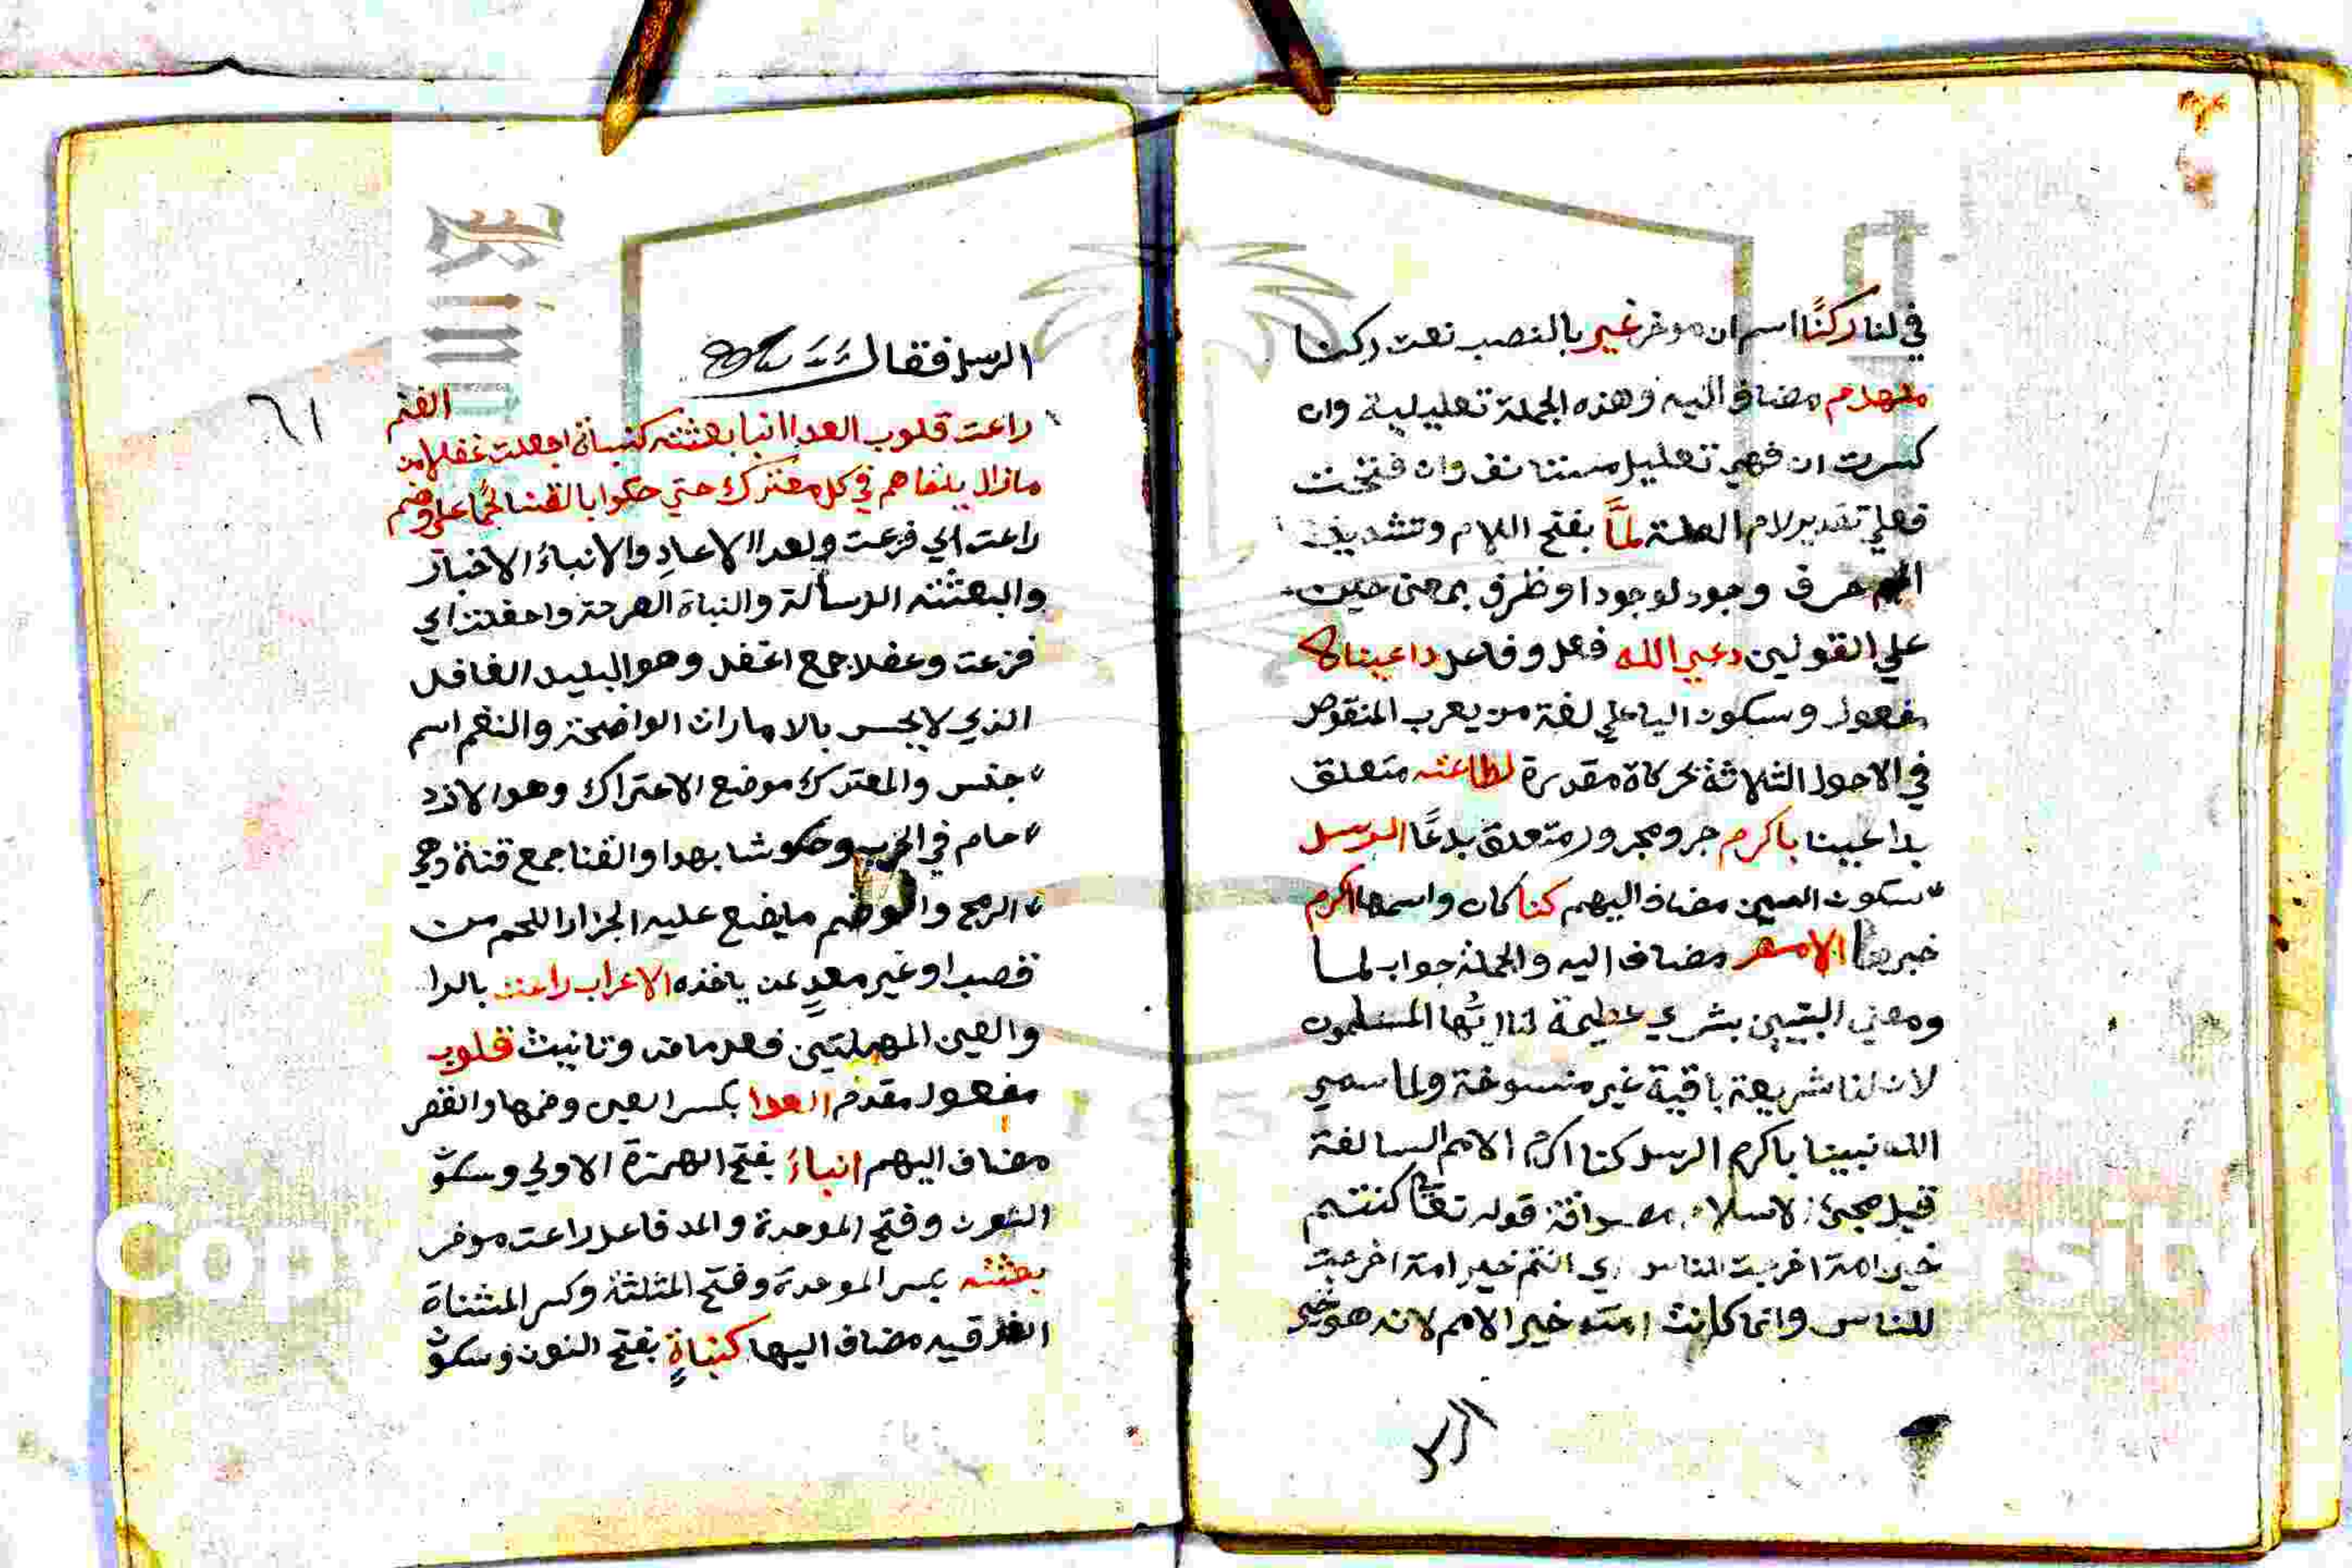 في لنا ركنًا اسم ان موخر غير بالنصب نعت ركنا
منهدم مضاف اليه وهذه الجملة تعليلية وان
كسرت ان فهي تعليل مستانف وان فتحت
فعلي تقدير لام العلة لمَّا بفتح اللام وتشديد
الميم حرف وجود لوجود او ظرف بمعني حين
علي القولين دعي الله فعل وفاعل داعينا
مفعول وسكون اليا علي لغة من يعرب المنقوص
في الاحوال الثلاثة بحركاة مقدرة لطاعته متعلق
بداعينا باكرم جر ومجرور متعلق بدعًا الرسل
بسكون السين مضاف اليهم كنا كان واسمها اكرم
خبرها الامم مضاف اليه والجملة جواب لما
ومعني البيتين بشري عظيمة لنا ايّها المسلمون
لان لنا شريعة باقية غير منسوخة ولما سمي
الله نبينا باكرم الرسل كنا اكرم الامم السالفة
قبل مجئ الاسلام قوله تعا كنتم
خير امة اخرجت للناس اي انتم خير امة اخرجت
للناس وانما كانت امته خير الامم لانه هو خير
الرسل
٦١
الرسل فقال
راعت قلوب العدا انبا بعثته كنباة اجفلت غفلا من الغنم
مازال يلقاهم في كل معترك حتي حكوا بالقنا لحمًا علي وضم
راعت اي فزعت والعدا الاعادِ والانباءُ الاخبار
والبعثته الرسالة والنباة الصرخة واجفلت اي
فزعت وغفلا جمع اغفل وهو البليد الغافل
الذي لا يحس بالامارات الواضحة والغنم اسم
جنس والمعترك موضع الاعتراك وهو الازد
حام في الحرب وحكو شابهوا والقنا جمع قناة وهي
الرمح والوضم ما يضع عليه الجزار اللحم من
قصب او غير معدٍ عن ياخذه الاعراب راعت بالرا
والعين المهملتين فعل ماض وتانيث قلوب
مفعول مقدم العدا بكسر العين وضمها والقصر
مضاف اليهم انباءُ بفتح الهمزة الاولي وسكو
النون وفتح الموحدة والمد فاعل راعت موخر
بعثته بكسر الموحدة وفتح المثلثة وكسر المثناة
الفوقيه مضاف اليها كنباةٍ بفتح النون وسكو